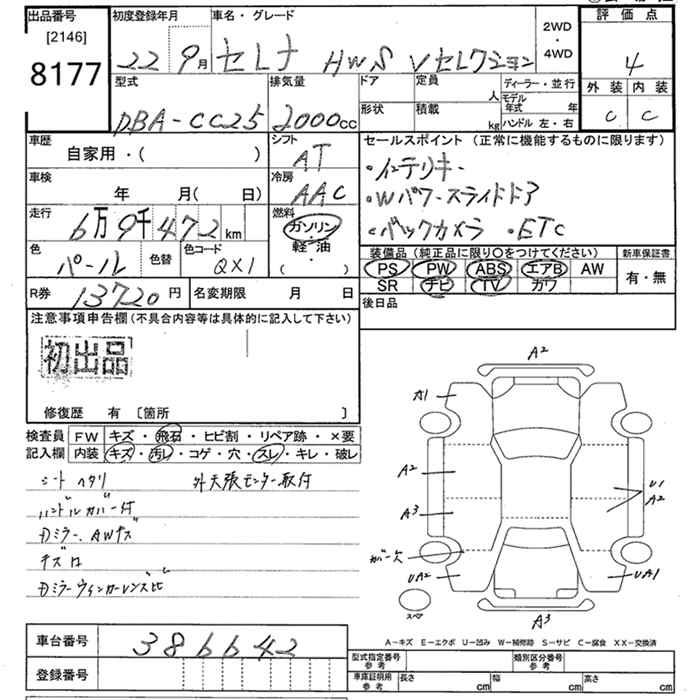 出品番号
[2146]
8177
初度登録年月
22 9月
車名・グレード
セレナ HWS Vセレクション
2WD
・
4WD
評価点
4
外装 内装
C C
型式
DBA-CC25
排気量
2000cc
ドア
形状
定員
人
積載
kg
ディーラー・並行
モデル年式 年
ハンドル 左・右
車歴
自家用・( )
シフト
AT
車検
年 月( 日)
冷房
AAC
走行
6万9千472km
燃料
ガソリン
・
軽・油
・
( )
色
パール
色替
色コード
QX1
R券
13720円
名変期限 月 日
セールスポイント (正常に機能するものに限ります)
・インテリキー
・Wパワースライドドア
・バックカメラ ・ETC
装備品 (純正品に限り○をつけてください)
PS PW ABS エアB AW
SR ナビ TV カワ
新車保証書
有・無
後日品
注意事項申告欄 (不具合内容等は具体的に記入して下さい)
初出品
修復歴 有 [箇所 ]
検査員記入欄
FW キズ・飛石・ヒビ割・リペア跡・×要
内装 キズ・汚レ・コゲ・穴・スレ・キレ・破レ
シートヘタリ 外天張モニター取付
ハンドルカバー付
Dミラー、AWキズ
キズ凹
Dミラーウィンカーレンズヒビ
A2
A1
A2
A3
ガー欠
UA2
スペア
A3
U1
A2
UA1
A-キズ E-エクボ U-凹み W-補修跡 S-サビ C-腐食 XX-交換済
車台番号 386642
登録番号
型式指定番号 参考
類別区分番号 参考
車庫証明用 参考
長さ cm
幅 cm
高さ cm